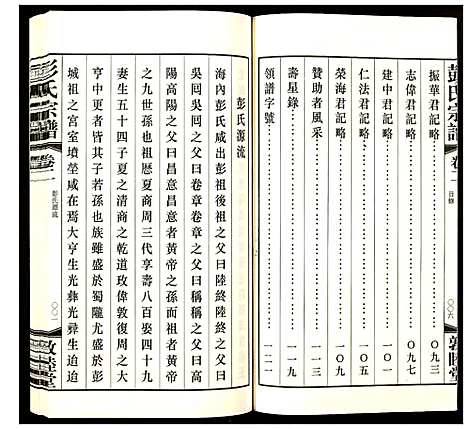 彭氏宗譜
卷二
目錄
〇〇六
敦睦堂
振華君記略⋯⋯〇九三
志偉君記略⋯⋯〇九七
建中君記略⋯⋯一〇一
仁法君記略⋯⋯一〇五
榮海君記略⋯⋯一〇九
贊助者風采⋯⋯一一三
壽星錄⋯⋯一一九
領譜字號⋯⋯一二一
彭氏源流
海內彭氏咸出彭祖後祖之父曰陸終陸終之父曰
吳囘吳囘之父曰卷章卷章之父曰稱稱之父曰高
陽高陽之父曰昌意昌意者黃帝之孫而祖者黃帝
之九世孫也祖歷夏商周三代享壽八百娶四十九
妻生五十四子歷夏之清商之乾道玫偉敦復周之大
亨中更者皆其子若孫也支族雖盛於蜀隴尤盛於彭
城祖之宮室墳塋咸在焉大亨生光彝光彝生迨迨
彭氏宗譜
卷二
彭氏源流
〇〇一
敦睦堂